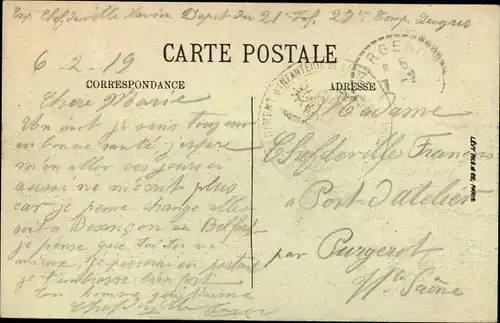 Exp. Chefdeville Xavier Depot du 21e Inf. 29e Comp. Langres
CARTE POSTALE
6-2-19
CORRESPONDANCE
ADRESSE
Chère Marie
Un mot je suis toujours
en bonne santé j'espère
m'en aller ces jours ci
aussi ne m'écrit plus
car je pense changer aller
soit a Besançon ou Belfort
je pense que toi tu va
mieux
je t'embrasse bien fort
Ton homme qui t'aime
Chefdeville Xavier
Madame
Chefdeville François
a Port d'atelier
par Purgerot
Hte Saône
LÉVY FILS & CIE, PARIS